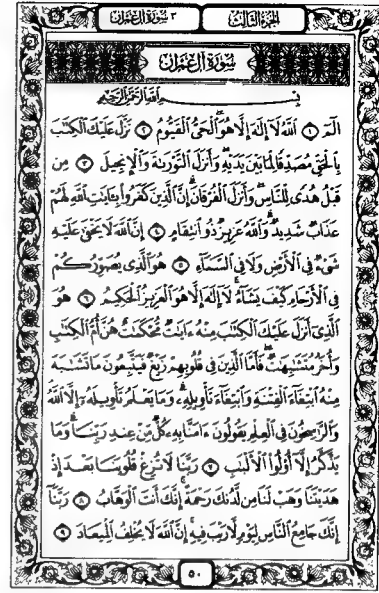 ٣ سورة آل عمران
الجزء الثالث
سورة آل عمران
بسم الله الرحمن الرحيم
الٓمٓ ١ ٱللَّهُ لَآ إِلَٰهَ إِلَّا هُوَ ٱلْحَىُّ ٱلْقَيُّومُ ٢ نَزَّلَ عَلَيْكَ ٱلْكِتَٰبَ
بِٱلْحَقِّ مُصَدِّقًا لِّمَا بَيْنَ يَدَيْهِ وَأَنزَلَ ٱلتَّوْرَىٰةَ وَٱلْإِنجِيلَ ٣ مِن
قَبْلُ هُدًى لِّلنَّاسِ وَأَنزَلَ ٱلْفُرْقَانَ إِنَّ ٱلَّذِينَ كَفَرُوا۟ بِـَٔايَٰتِ ٱللَّهِ لَهُمْ
عَذَابٌ شَدِيدٌ وَٱللَّهُ عَزِيزٌ ذُو ٱنتِقَامٍ ٤ إِنَّ ٱللَّهَ لَا يَخْفَىٰ عَلَيْهِ
شَىْءٌ فِى ٱلْأَرْضِ وَلَا فِى ٱلسَّمَآءِ ٥ هُوَ ٱلَّذِى يُصَوِّرُكُمْ
فِى ٱلْأَرْحَامِ كَيْفَ يَشَآءُ لَآ إِلَٰهَ إِلَّا هُوَ ٱلْعَزِيزُ ٱلْحَكِيمُ ٦ هُوَ
ٱلَّذِىٓ أَنزَلَ عَلَيْكَ ٱلْكِتَٰبَ مِنْهُ ءَايَٰتٌ مُّحْكَمَٰتٌ هُنَّ أُمُّ ٱلْكِتَٰبِ
وَأُخَرُ مُتَشَٰبِهَٰتٌ فَأَمَّا ٱلَّذِينَ فِى قُلُوبِهِمْ زَيْغٌ فَيَتَّبِعُونَ مَا تَشَٰبَهَ
مِنْهُ ٱبْتِغَآءَ ٱلْفِتْنَةِ وَٱبْتِغَآءَ تَأْوِيلِهِۦ وَمَا يَعْلَمُ تَأْوِيلَهُۥٓ إِلَّا ٱللَّهُ
وَٱلرَّٰسِخُونَ فِى ٱلْعِلْمِ يَقُولُونَ ءَامَنَّا بِهِۦ كُلٌّ مِّنْ عِندِ رَبِّنَا وَمَا
يَذَّكَّرُ إِلَّآ أُو۟لُوا۟ ٱلْأَلْبَٰبِ ٧ رَبَّنَا لَا تُزِغْ قُلُوبَنَا بَعْدَ إِذْ
هَدَيْتَنَا وَهَبْ لَنَا مِن لَّدُنكَ رَحْمَةً إِنَّكَ أَنتَ ٱلْوَهَّابُ ٨ رَبَّنَآ
إِنَّكَ جَامِعُ ٱلنَّاسِ لِيَوْمٍ لَّا رَيْبَ فِيهِ إِنَّ ٱللَّهَ لَا يُخْلِفُ ٱلْمِيعَادَ ٩
٥٠